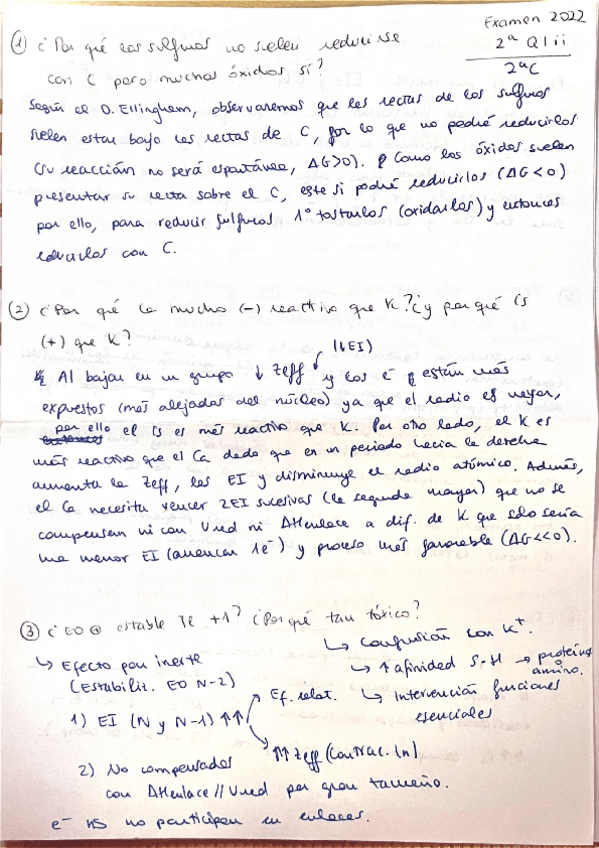 Examen 2022
2ª QIii
2ªC
① ¿Por qué los sulfuros no suelen reducirse
con C pero muchos óxidos sí?
Según el D. Ellingham, observaremos que las rectas de los sulfuros
suelen estar bajo las rectas de C, por lo que no podrá reducirlos
(su reacción no será espontánea, ΔG>0). Como los óxidos suelen
presentar su recta sobre el C, este si podrá reducirlos (ΔG<0)
por ello, para reducir sulfuros 1º tostarlos (oxidarlos) y entonces
reducirlos con C.
② ¿Por qué Ca mucho (-) reactivo que K? ¿y por qué Cs
(+) que K?
(↓EI)
Al bajar en un grupo ↓ Zeff y los e⁻ están más
expuestos (más alejados del núcleo) ya que el radio es mayor,
por ello el Cs es más reactivo que K. Por otro lado, el K es
más reactivo que el Ca dado que en un periodo hacia la derecha
aumenta la Zeff, las EI y disminuye el radio atómico. Además,
el Ca necesita vencer 2EI sucesivas (la segunda mayor) que no se
compensan ni con Ured ni ΔHenlace a dif. de K que sólo sería
una menor EI (arrancar 1e⁻) y proceso más favorable (ΔG<<0).
③ ¿EO estable Tl +1? ¿Por qué tan tóxico?
↳ Efecto par inerte
(Estabiliz. EO N-2)
1) EI (N y N-1) ↑↑
Ef. relat.
↑↑ Zeff (Contrac. ln)
2) No compensados
con ΔHenlace // Ured por gran tamaño.
e⁻ ns no participan en enlaces.
↳ Confusión con K⁺.
↳ ↑ afinidad S-H → proteínas
amino.
↳ Intervención funciones
esenciales